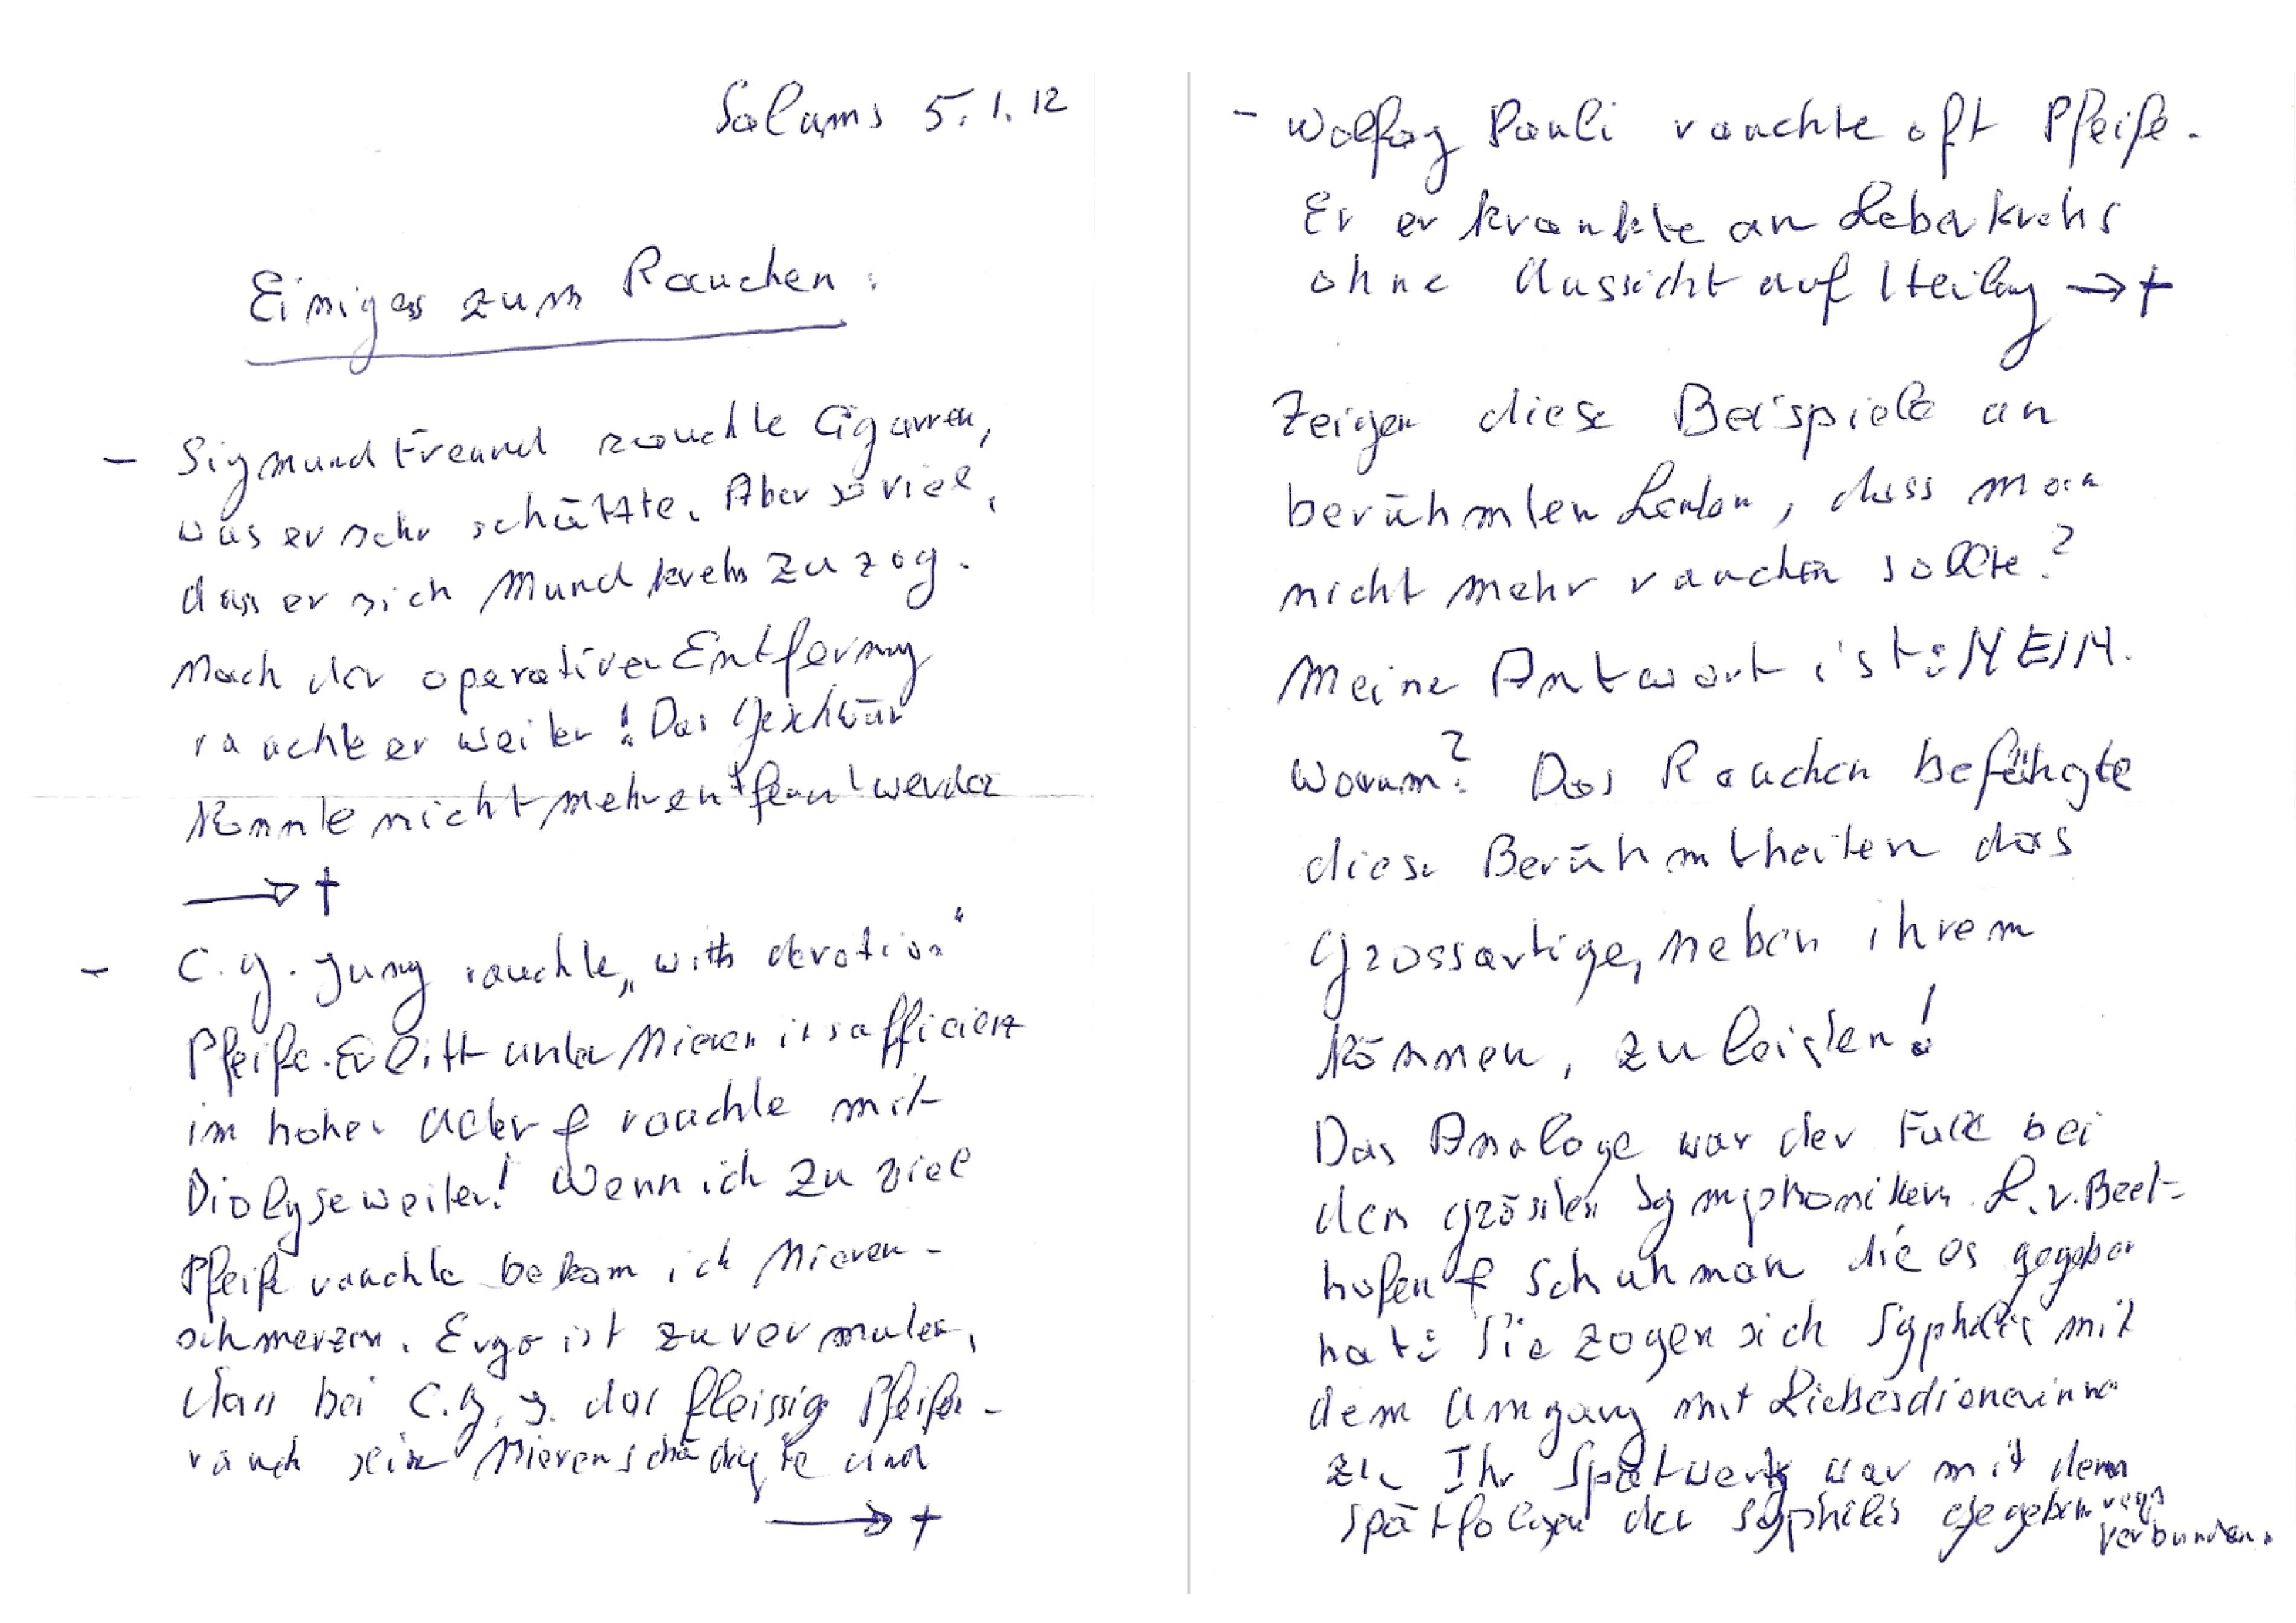 Solums 5.1.12
Einiges zum Rauchen:
– Sigmund Freund rauchte Cigarren,
was er sehr schätzte. Aber so viel,
dass er sich Mundkrebs zu zog.
Nach der operativen Entfernung
rauchte er weiter! Das Geschwür
konnte nicht mehr entfernt werden
→ †
– C. G. Jung rauchte „with devotion"
Pfeife. Er litt unter Niereninsufficienz
im hohen Alter & rauchte mit
Dialyse weiter! Wenn ich zu viel
Pfeife rauchte bekam ich Nieren-
schmerzen. Ergo ist zu vermuten,
dass bei C. G. J. das fleissige Pfeifen-
rauch seine Nieren schädigte und
→ †
– Wolfag Pauli rauchte oft Pfeife.
Er erkrankte an Leberkrebs
ohne Aussicht auf Heilung → †
Zeigen diese Beispiele an
berühmten Leuten, dass man
nicht mehr rauchen sollte?
Meine Antwort ist: NEIN.
Warum? Das Rauchen befähigte
diese Berühmtheiten das
Grossartige, neben ihrem
Können, zu leisten!
Das Analoge war der Fall bei
den grössten Symphonikern L. v. Beet-
hofen & Schuhman die es gegeben
hat: Sie zogen sich Syphilis mit
dem Umgang mit Liebesdienerinnen
zu Ihr Spätwerk war mit den
Spätfolgen der Syphilis gegeben resp
verbunden.